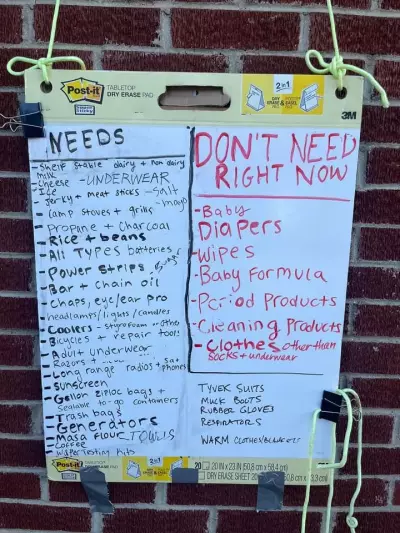 Post-it
Super Sticky
TABLETOP
DRY ERASE PAD
2 in 1
DRY ERASE &
EASEL PAD
3M
NEEDS
- Shelf stable dairy + non dairy
milk
- Cheese
- UNDERWEAR
- Ice
- Salt
- Jerky + meat sticks
- mayo
- Camp stoves + grills
- Propane + Charcoal
- Rice + beans
- All TYPES batteries
- Power strips
- Sugar
- Bar + Chain oil
- Chaps, eye/ear pro
- headlamps/lights/candles
- Coolers - styrofoam or other
- Bicycles + repair tools
- Adult underwear
- Razors +
- Long range radios + sat phones
- Sunscreen
- Gallon ziploc bags +
Sealable to-go containers
- Trash bags
- Generators
- Masa flour
TOWELS
- Coffee
- Water testing kits
DON'T NEED
RIGHT NOW
- Baby
Diapers
- Wipes
- Baby Formula
- Period Products
- Cleaning Products
- Clothes other than
socks + underwear
TYVEK SUITS
MUCK BOOTS
RUBBER GLOVES
RESPIRATORS
WARM CLOTHES/BLANKETS
Post-it
TABLETOP
DRY ERASE PAD
2 in 1
20
20 IN x 23 IN (50,8 cm x 58,4 cm)
DRY ERASE SHEET